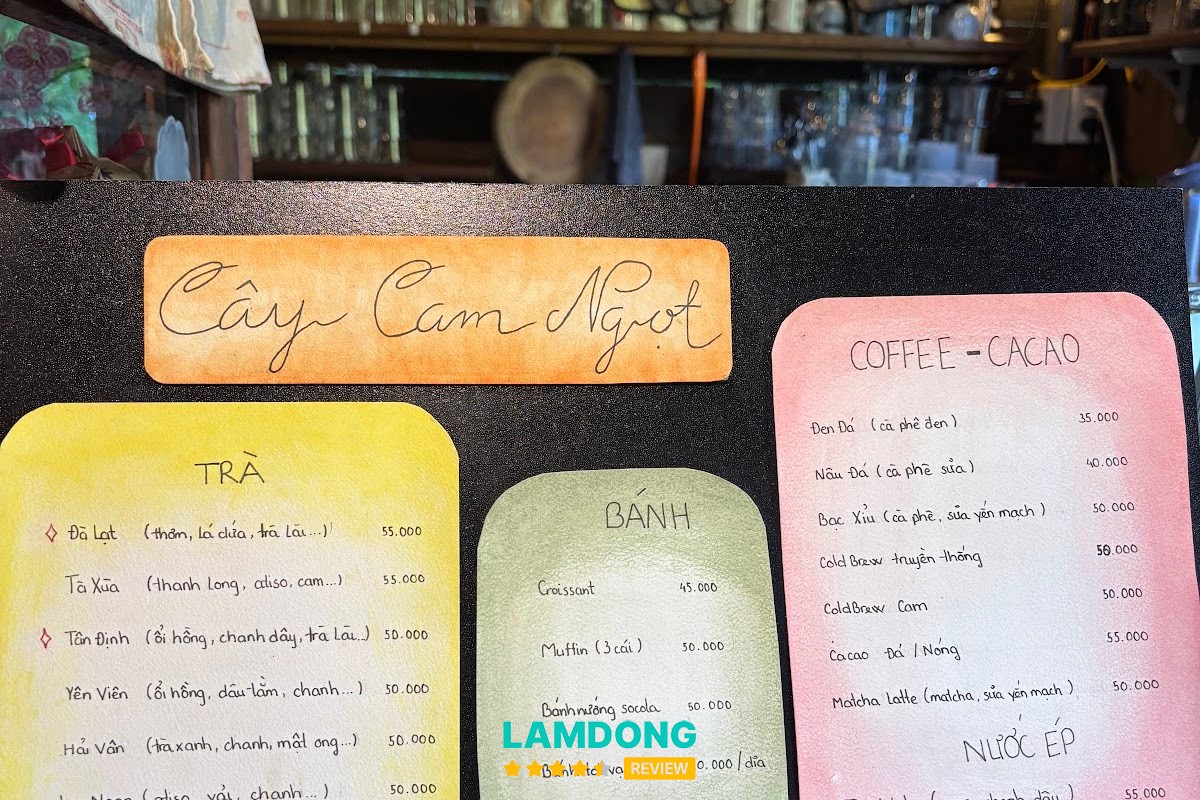 Cây Cam Ngọt
TRÀ
Đà Lạt (thơm, lá dứa, trà lài...) 55.000
Tà Xùa (thanh long, atiso, cam...) 55.000
Tân Định (ổi hồng, chanh dây, trà lài..) 50.000
Yên Viên (ổi hồng, dâu tằm, chanh...) 50.000
Hải Vân (trà xanh, chanh, mật ong...) 50.000
(atiso, vải, chanh...) 50.000
BÁNH
Croissant 45.000
Muffin (3 cái) 50.000
Bánh nướng socola 50.000
0.000/dĩa
COFFEE - CACAO
Đen Đá (cà phê đen) 35.000
Nâu Đá (cà phê sữa) 40.000
Bạc Xỉu (cà phê, sữa yến mạch) 50.000
Cold Brew truyền thống 50.000
ColdBrew Cam 50.000
Cacao Đá / Nóng 55.000
Matcha Latte (matcha, sữa yến mạch) 50.000
NƯỚC ÉP
55.000
LAMDONG
REVIEW